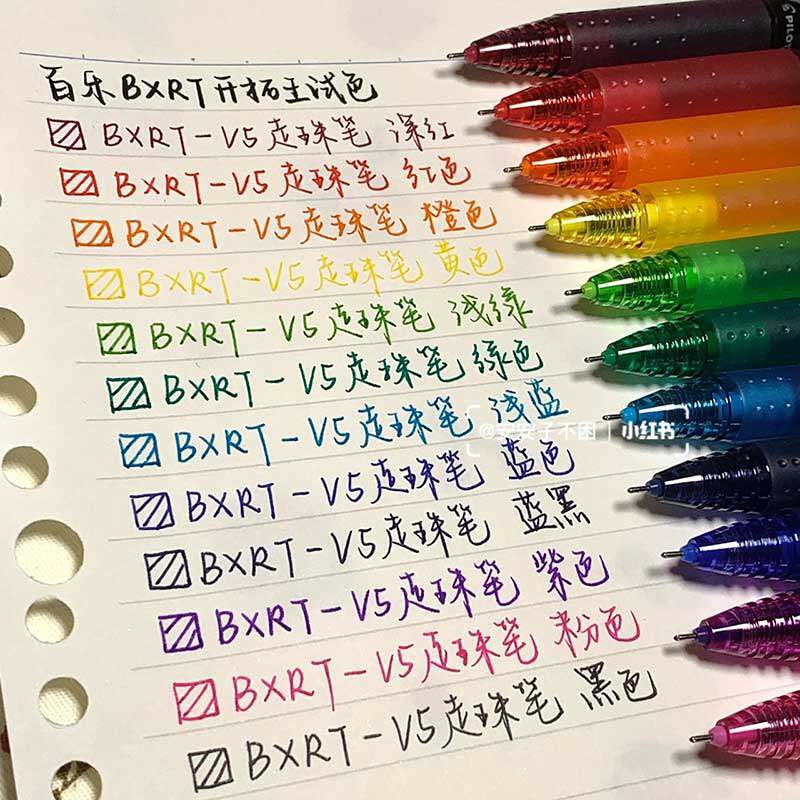 百乐BXRT开拓王试色
BXRT-V5走珠笔 深红
BXRT-V5走珠笔 红色
BXRT-V5走珠笔 橙色
BXRT-V5走珠笔 黄色
BXRT-V5走珠笔 浅绿
BXRT-V5走珠笔 绿色
BXRT-V5走珠笔 浅蓝
@安安子不困 | 小红书
BXRT-V5走珠笔 蓝色
BXRT-V5走珠笔 蓝黑
BXRT-V5走珠笔 紫色
BXRT-V5走珠笔 粉色
BXRT-V5走珠笔 黑色
PILOT